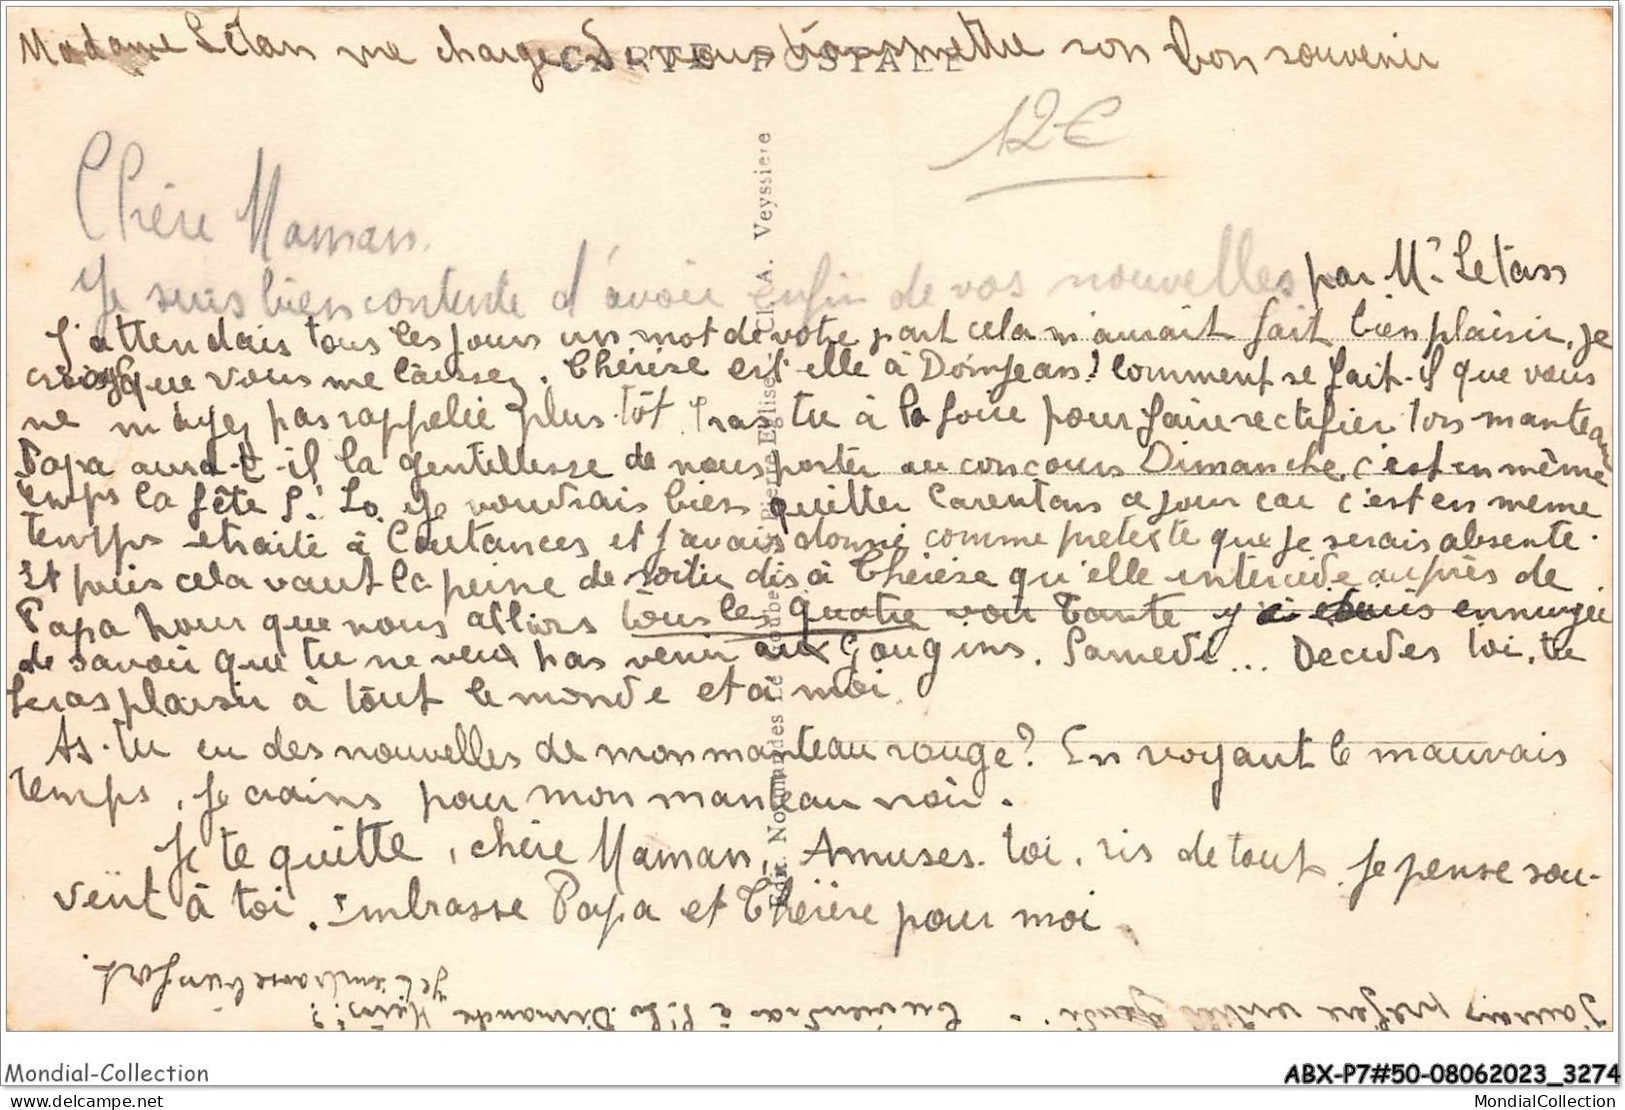 Madame Létan me charge de vous transmettre son bon souvenir
CARTE POSTALE
12 €
Chère Maman.
Je suis bien contente d'avoir enfin de vos nouvelles par Mr Letan
J'attendais tous les jours un mot de votre part cela m'aurait fait bien plaisir. Je
crois que vous me laissez. Thérèse est-elle à Domjean? Comment se fait-il que vous
ne m'ayez pas rappelée plus tôt. Iras tu à la foire pour faire rectifier ton manteau
Papa aura-t-il la gentillesse de nous porter au concours Dimanche, c'est en même
temps la fête St Lo. Je voudrais bien quitter Carentan ce jour car c'est en même
temps retraite à Coutances et j'avais donné comme prétexte que je serais absente.
Et puis cela vaut la peine de sortir dis à Thérèse qu'elle intercède auprès de
Papa pour que nous allions tous les quatre voir Tante ennuyée
de savoir que tu ne veux pas venir aux Gougins. Samedi... Decides toi, tu
feras plaisir à tout le monde et à moi.
As-tu eu des nouvelles de mon manteau rouge? En voyant le mauvais
temps, je crains pour mon manteau noir.
Je te quitte, chère Maman, Amuses-toi, ris de tout. Je pense sou-
vent à toi. Embrasse Papa et Thérèse pour moi.
J'aurais préféré. Tu viendras à St Lo Dimanche Hein??
Je t'embrasse bien fort.
Edit. Normandes Le Goubey, St-Pierre-Eglise, Cl. A. Veyssiere
Mondial-Collection
ABX-P7#50-08062023_3274
delcampe.net
MondialCollection